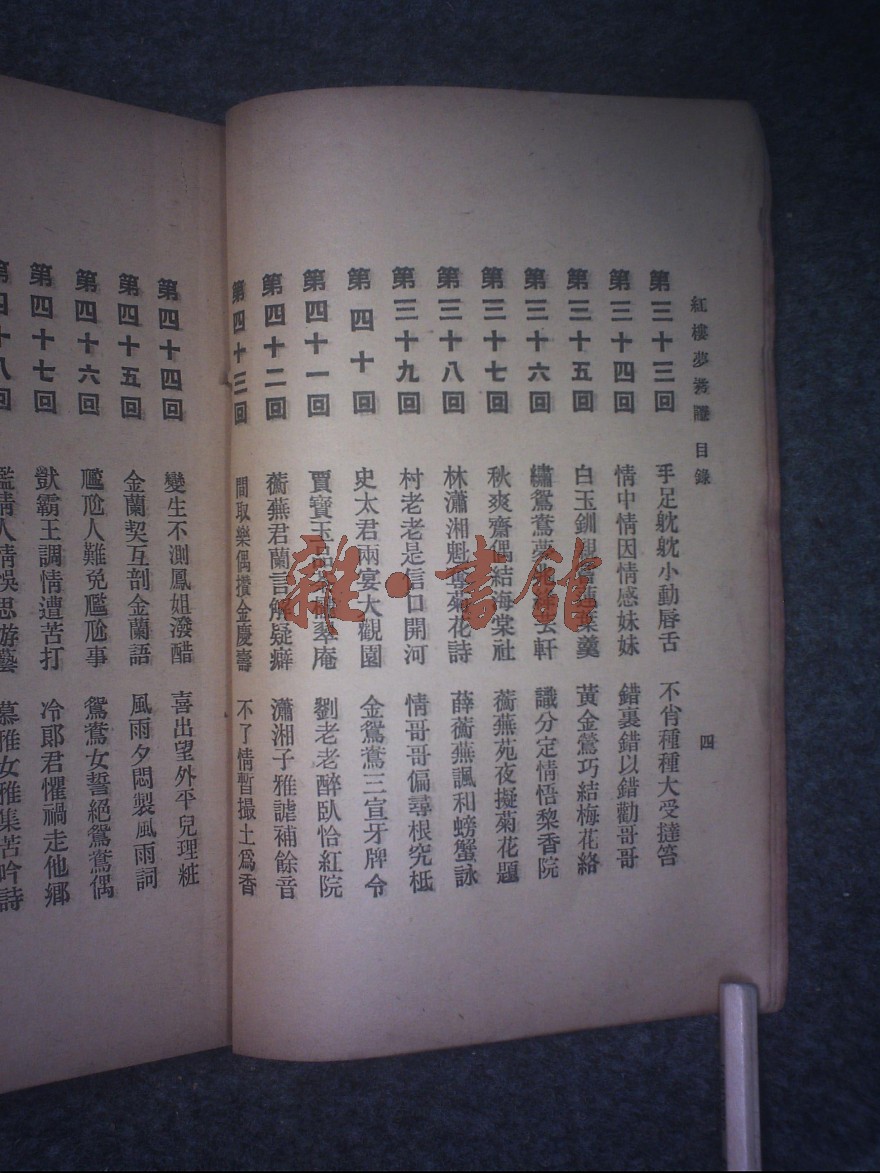 紅樓夢索隱 目錄
四
第三十三回 手足眈眈小動唇舌 不肖種種大受撻笞
第三十四回 情中情因情感妹妹 錯裏錯以錯勸哥哥
第三十五回 白玉釧親嘗蓮葉羹 黃金鶯巧結梅花絡
第三十六回 繡鴛鴦夢兆絳芸軒 識分定情悟黎香院
第三十七回 秋爽齋偶結海棠社 蘅蕪苑夜擬菊花題
第三十八回 林瀟湘魁奪菊花詩 薛蘅蕪諷和螃蟹詠
第三十九回 村老老是信口開河 情哥哥偏尋根究柢
第四十回 史太君兩宴大觀園 金鴛鴦三宣牙牌令
第四十一回 賈寶玉品茶櫳翠庵 劉老老醉臥怡紅院
第四十二回 蘅蕪君蘭言解疑癖 瀟湘子雅謔補餘音
第四十三回 間取樂偶攢金慶壽 不了情暫撮土爲香
第四十四回 變生不測鳳姐潑醋 喜出望外平兒理粧
第四十五回 金蘭契互剖金蘭語 風雨夕悶製風雨詞
第四十六回 尷尬人難免尷尬事 鴛鴦女誓絕鴛鴦偶
第四十七回 獃霸王調情遭苦打 冷郎君懼禍走他鄉
第四十八回 濫情人情誤思游藝 慕雅女雅集苦吟詩
雜·書館